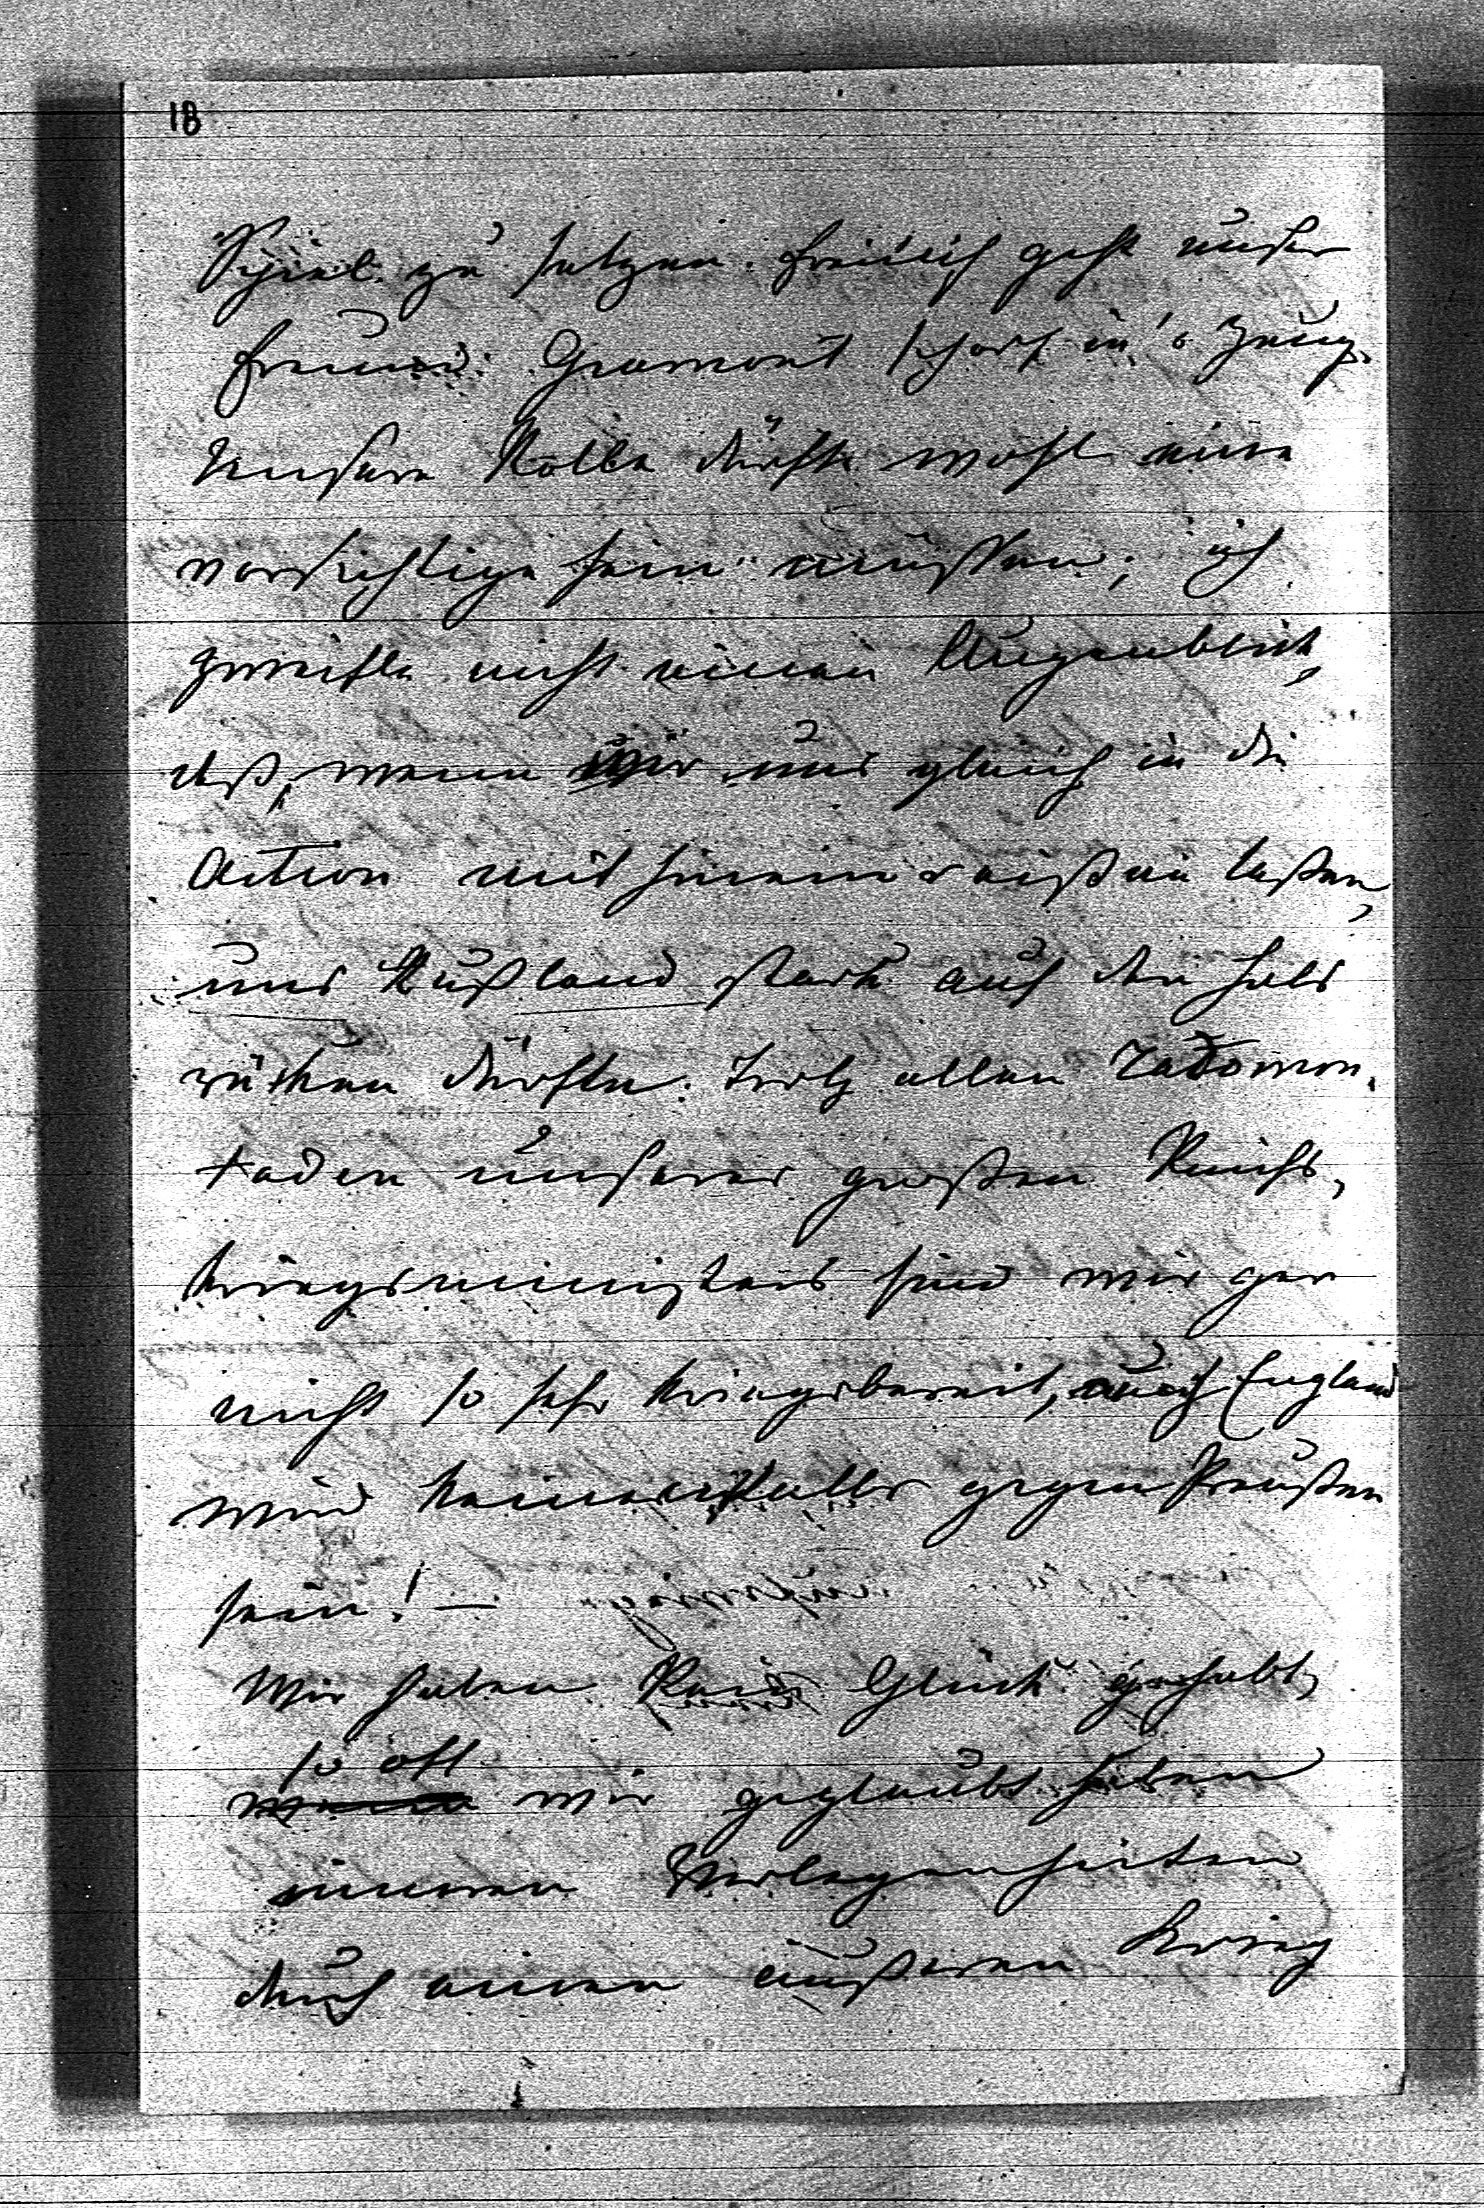 18
Spiel zu setzen. Freilich geht unser
Freund Gramont scharf in's Zeug.
Unsere Rolle dürfte wohl eine
vorsichtige sein müssen; ich
zweifle nicht einen Augenblick,
daß, wenn wir uns gleich in die
Action mit hineinreißen laßen,
uns Rußland stark auf den Hals
rücken dürfte. Trotz allen Radomon-
taden unseres großen Reichs-
kriegsministers sind wir gar
nicht so sehr kriegsbereit, auch England
wird keinesfalls gegen Preußen
sein! —
Wir haben kein Glück gehabt,
so oft
wir geglaubt haben
inneren Verlegenheiten
durch einen äußeren Krieg